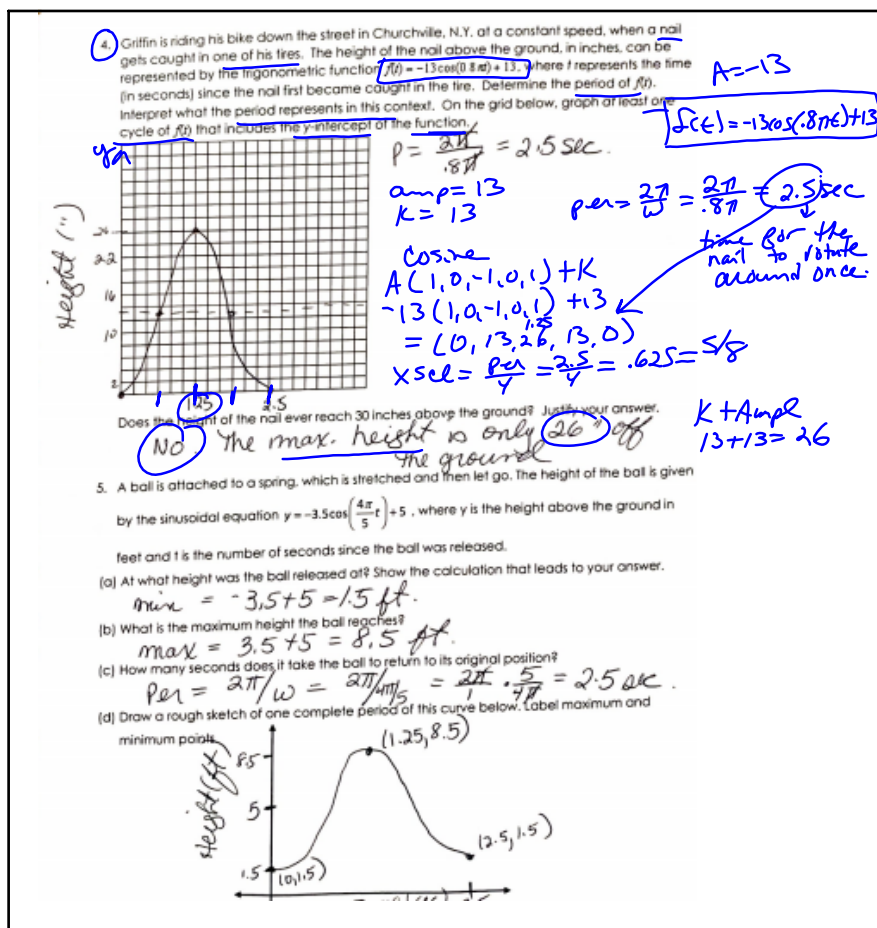 4. Griffin is riding his bike down the street in Churchville, N.Y. at a constant speed, when a nail
gets caught in one of his tires. The height of the nail above the ground, in inches, can be
represented by the trigonometric function f(t) = -13cos(0.8πt) + 13, where t represents the time
(in seconds) since the nail first became caught in the tire. Determine the period of f(t).
Interpret what the period represents in this context. On the grid below, graph at least one
cycle of f(t) that includes the y-intercept of the function.
A=-13
f(t) = -13cos(.8πt)+13
P = 2π/.8π = 2.5 sec.
amp = 13
K = 13
per = 2π/ω = 2π/.8π = 2.5 sec
time for the
nail to rotate
around once.
Cosine
A(1,0,-1,0,1)+K
-13(1,0,-1,0,1)+13
1.25
= (0, 13, 26, 13, 0)
x scl = per/4 = 2.5/4 = .625 = 5/8
Height (")
22
16
10
2
1.25
2.5
Does the height of the nail ever reach 30 inches above the ground? Justify your answer.
No. The max. height is only 26" off
the ground
K + Ampl
13+13 = 26
5. A ball is attached to a spring, which is stretched and then let go. The height of the ball is given
by the sinusoidal equation y = -3.5cos(4π/5 t) + 5, where y is the height above the ground in
feet and t is the number of seconds since the ball was released.
(a) At what height was the ball released at? Show the calculation that leads to your answer.
min = -3.5+5 = 1.5 ft.
(b) What is the maximum height the ball reaches?
max = 3.5 + 5 = 8.5 ft.
(c) How many seconds does it take the ball to return to its original position?
Per = 2π/ω = 2π/4π/5 = 2π/1 · 5/4π = 2.5 sec.
(d) Draw a rough sketch of one complete period of this curve below. Label maximum and
minimum points.
Height (ft)
8.5
(1.25, 8.5)
5
(2.5, 1.5)
1.5
(0, 1.5)